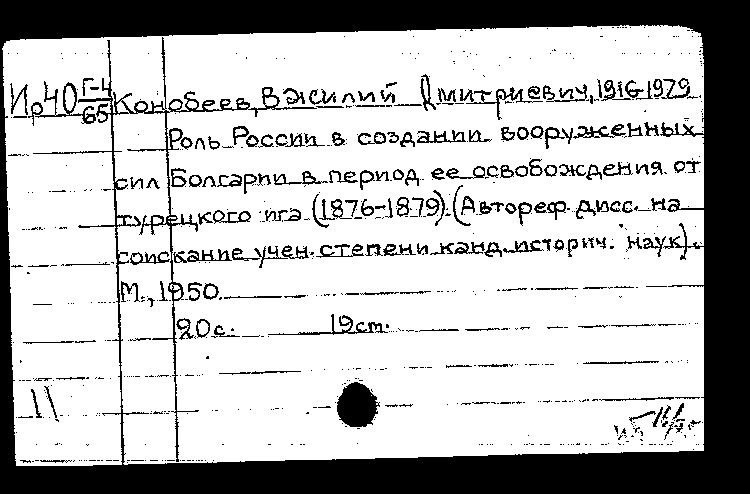 Ир40 Г-4/65 Конобеев, Василий Дмитриевич, 1916-1979
Роль России в создании вооруженных
сил Болгарии в период ее освобождения от
турецкого ига (1876-1879). (Автореф. дисс. на
соискание учен. степени канд. историч. наук).
М., 1950.
20 с. 19 cm.
11